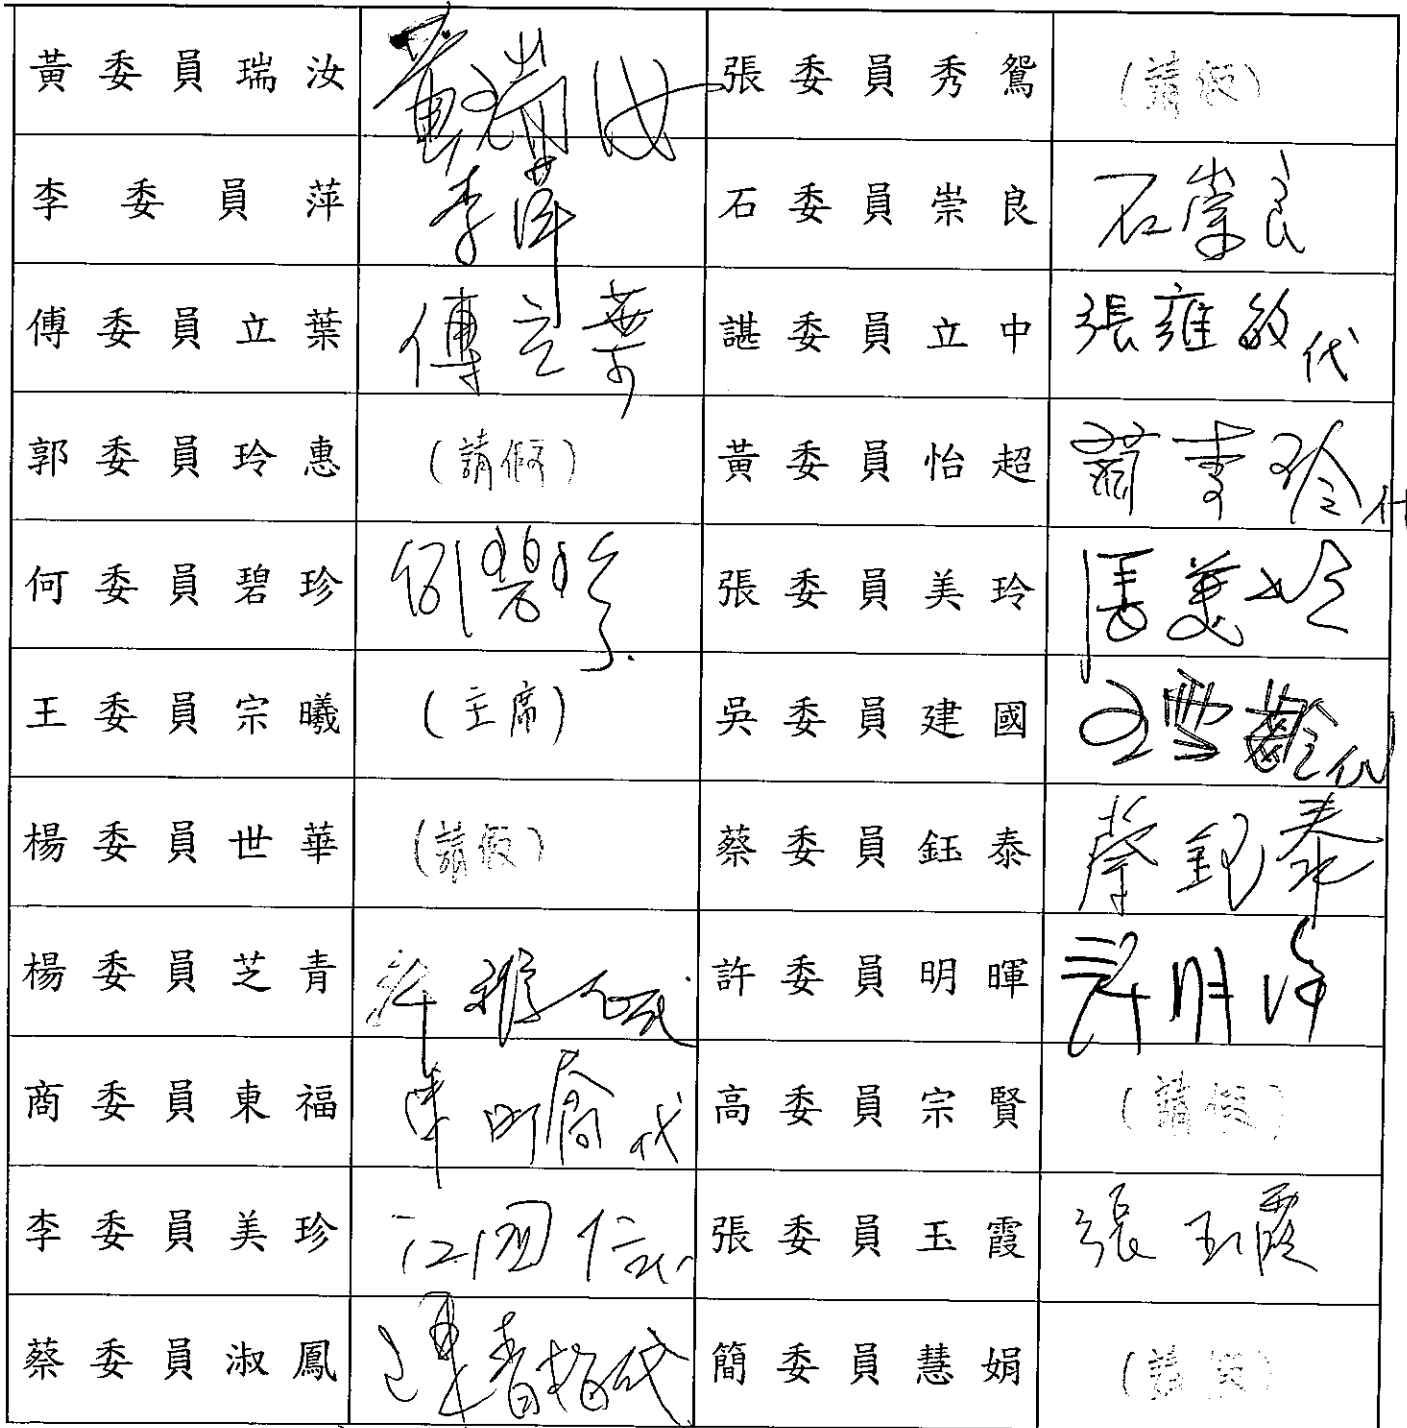 黃委員瑞汝 黃瑞汝 張委員秀鴛 (請假)
李委員萍 李萍 石委員崇良 石崇良
傅委員立葉 傅立葉 諶委員立中 張雍敏代
郭委員玲惠 (請假) 黃委員怡超 代
何委員碧珍 何碧珍 張委員美玲 張美玲
王委員宗曦 (主席) 吳委員建國 王雪齡代
楊委員世華 (請假) 蔡委員鈺泰 蔡鈺泰
楊委員芝青 許雅 代 許委員明暉 許明暉
商委員東福 代 高委員宗賢 (請假)
李委員美珍 江國信代 張委員玉霞 張玉霞
蔡委員淑鳳 代 簡委員慧娟 (請假)